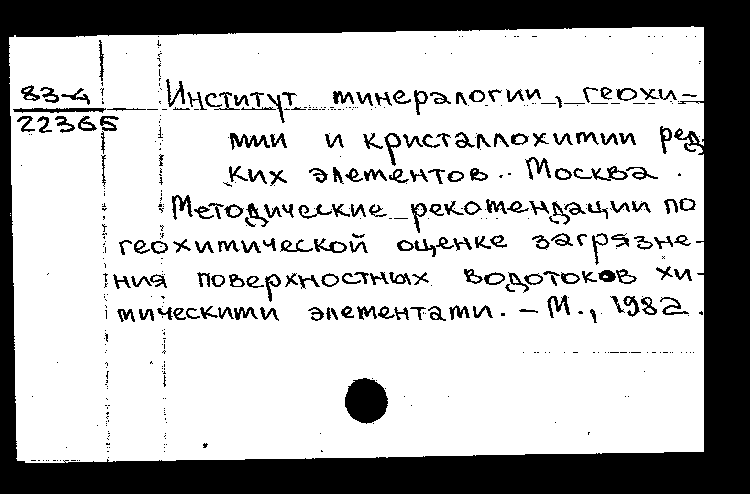 83-4
22365
Институт минералогии, геохи-
мии и кристаллохимии ред-
ких элементов.. Москва.
Методические рекомендации по
геохимической оценке загрязне-
ния поверхностных водотоков хи-
мическими элементами. – М., 1982.